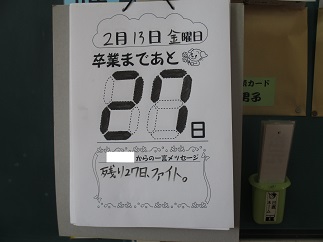 2月13日 金曜日
卒業まであと
27日
からの一言メッセージ
残り27日、ファイト。
カード
男子